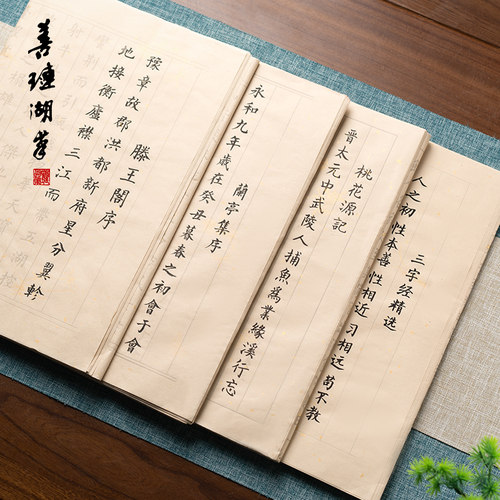 善璉湖筆
滕王閣序
豫章故郡洪都新府星分翼軫
地接衡廬襟三江而
蘭亭集序
永和九年歲在癸丑暮春之初會于會
桃花源記
晉太元中武陵人捕魚爲業緣溪行忘
三字经精选
人之初性本善性相近习相远苟不教